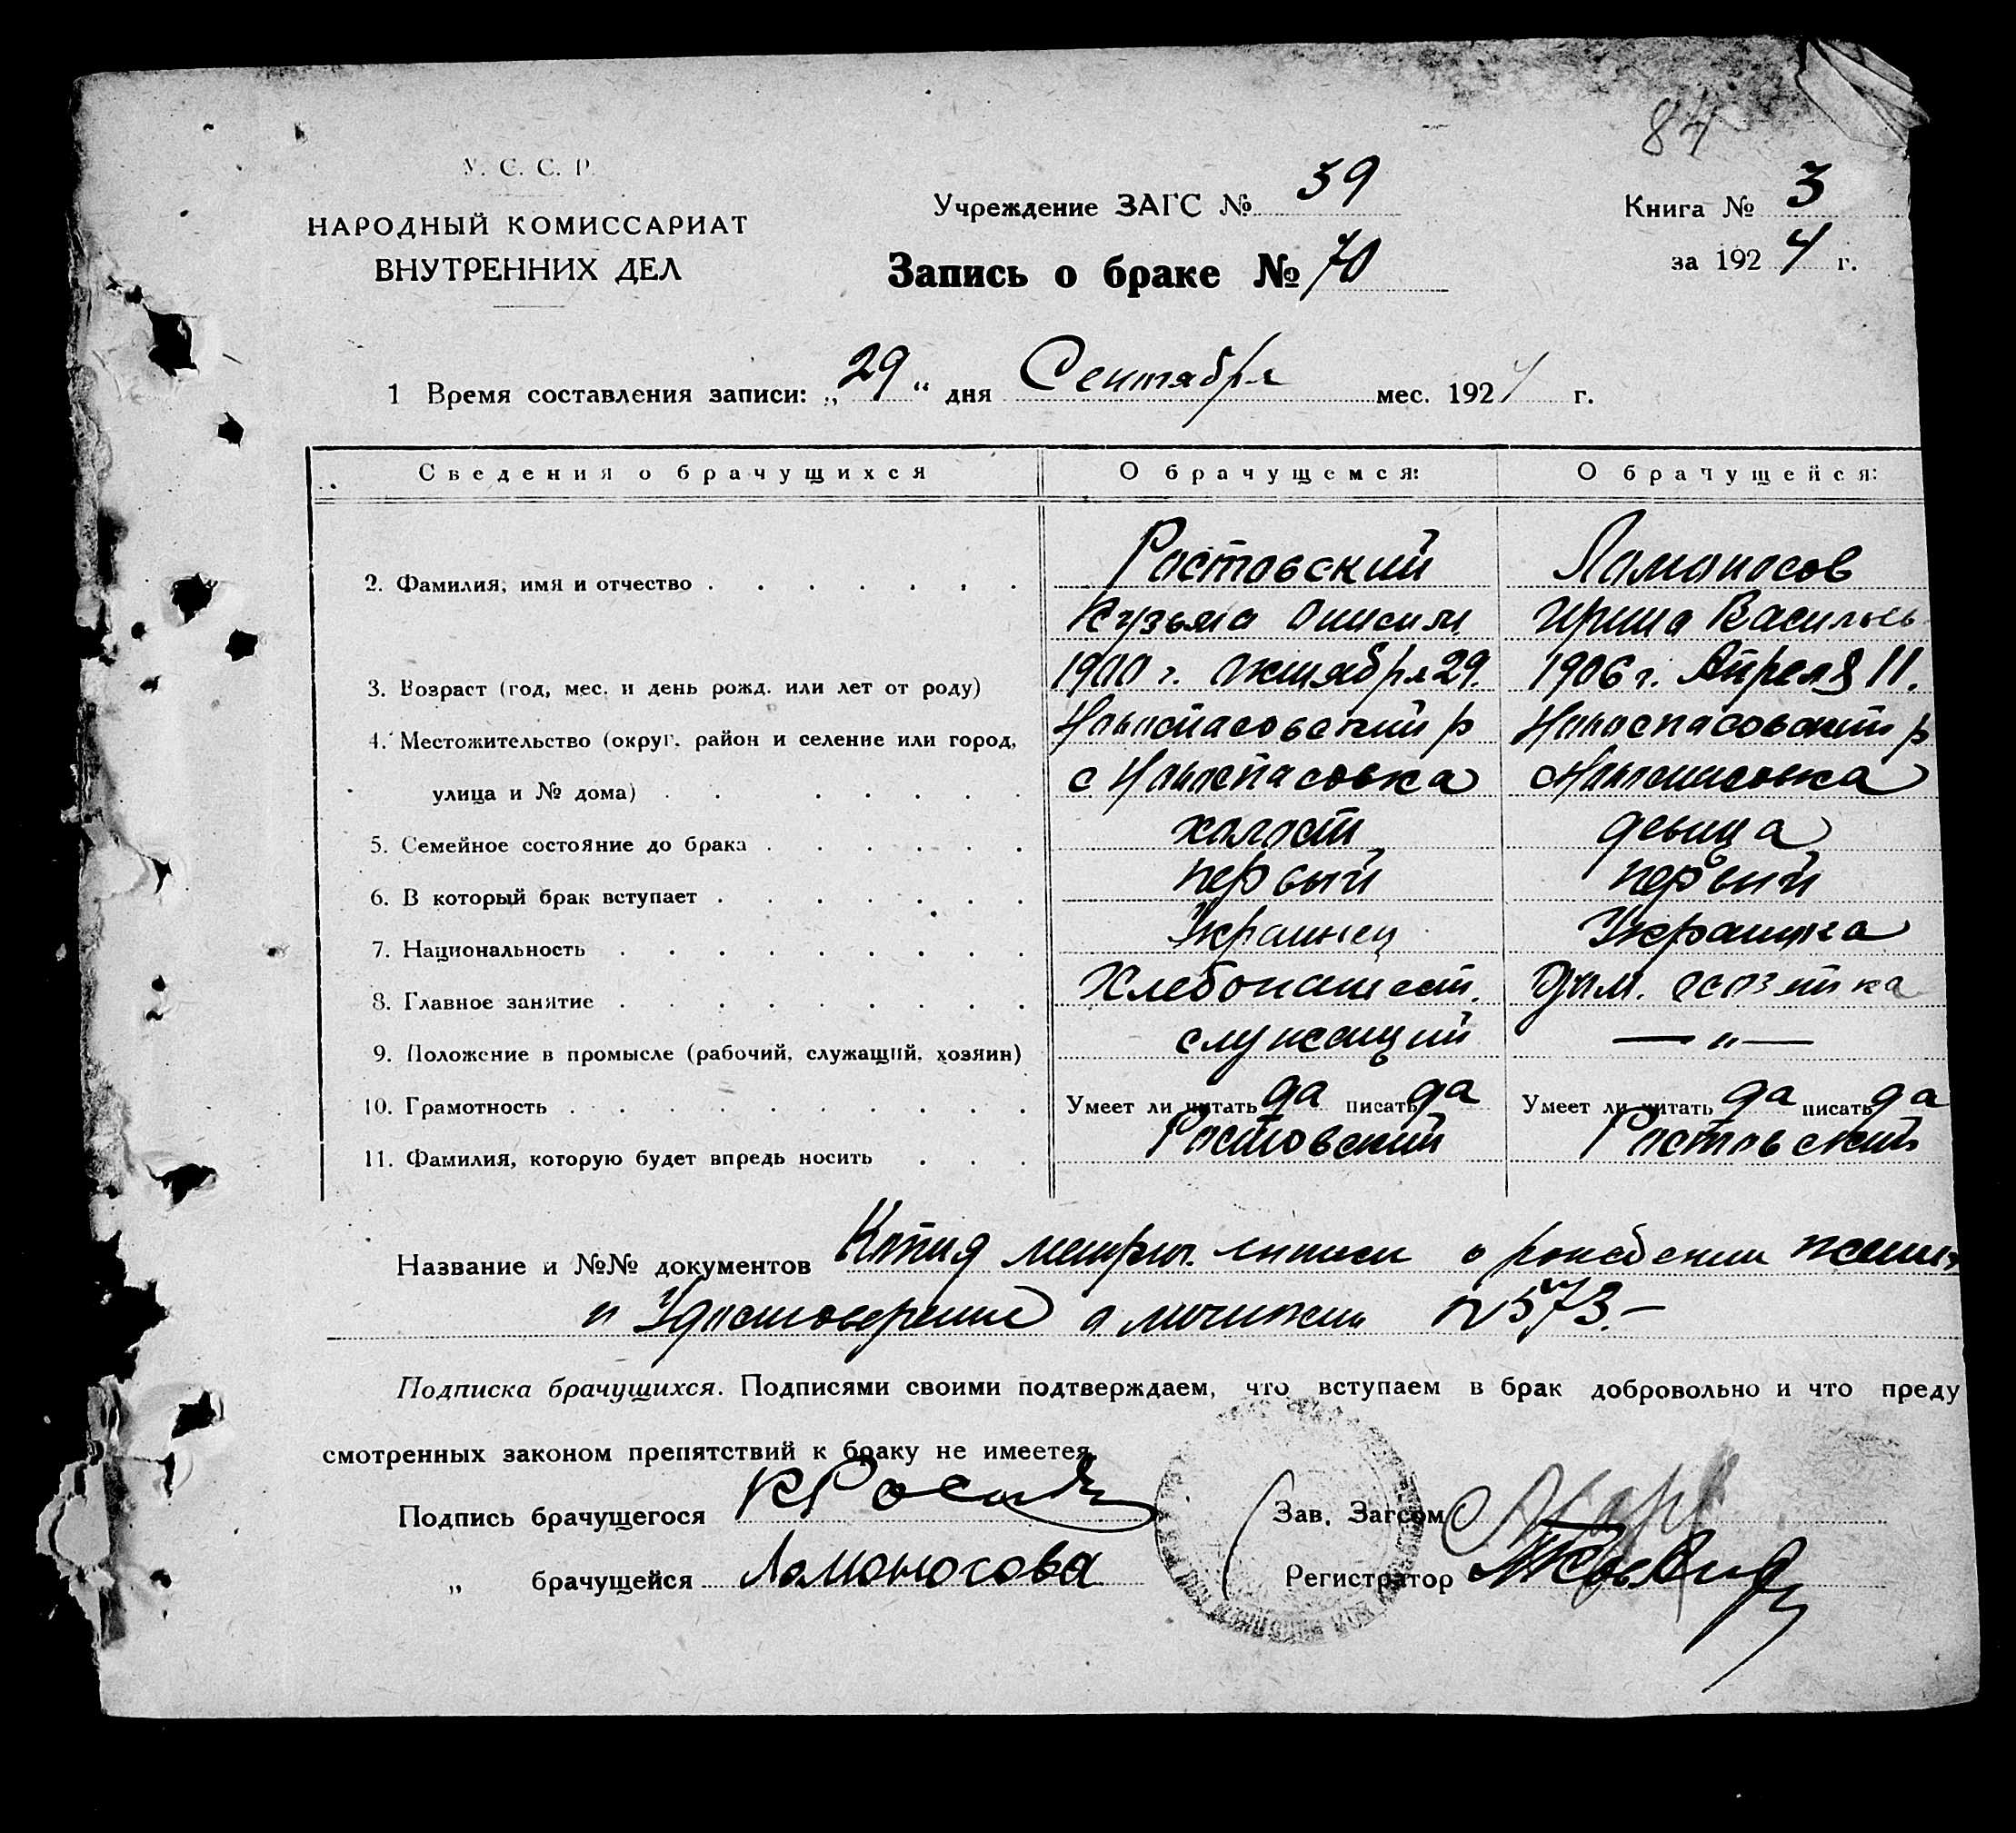 84
У. С. С. Р.
НАРОДНЫЙ КОМИССАРИАТ
ВНУТРЕННИХ ДЕЛ
Учреждение ЗАГС № 39
Книга № 3
Запись о браке № 70
за 1924 г.
1 Время составления записи: „29“ дня Сентября мес. 1924 г.
Сведения о брачущихся О брачущемся: О брачущейся:
2. Фамилия, имя и отчество Ростовский Ломоносов
Кузьма Онисим. Ирина Василь
3. Возраст (год, мес. и день рожд. или лет от роду) 1900 г. Октября 29. 1906 г. Апреля 11.
4. Местожительство (округ, район и селение или город, Новоспасовский р Новоспасовский р
улица и № дома) с Новоспасовка с Новоспасовка
5. Семейное состояние до брака холост девица
6. В который брак вступает первый первый
7. Национальность Украинец Украинка
8. Главное занятие Хлебопашест. Дом. хозяйка
9. Положение в промысле (рабочий, служащий, хозяин) служащий — „ —
10. Грамотность Умеет ли читать да писать да Умеет ли читать да писать да
11. Фамилия, которую будет впредь носить Ростовский Ростовский
Название и №№ документов Копия метрич. о рождении
и Удостоверение о личности №573.-
Подписка брачущихся. Подписями своими подтверждаем, что вступаем в брак добровольно и что преду
смотренных законом препятствий к браку не имеется
Подпись брачущегося Зав. Загсом
„ брачущейся Ломоносова Регистратор